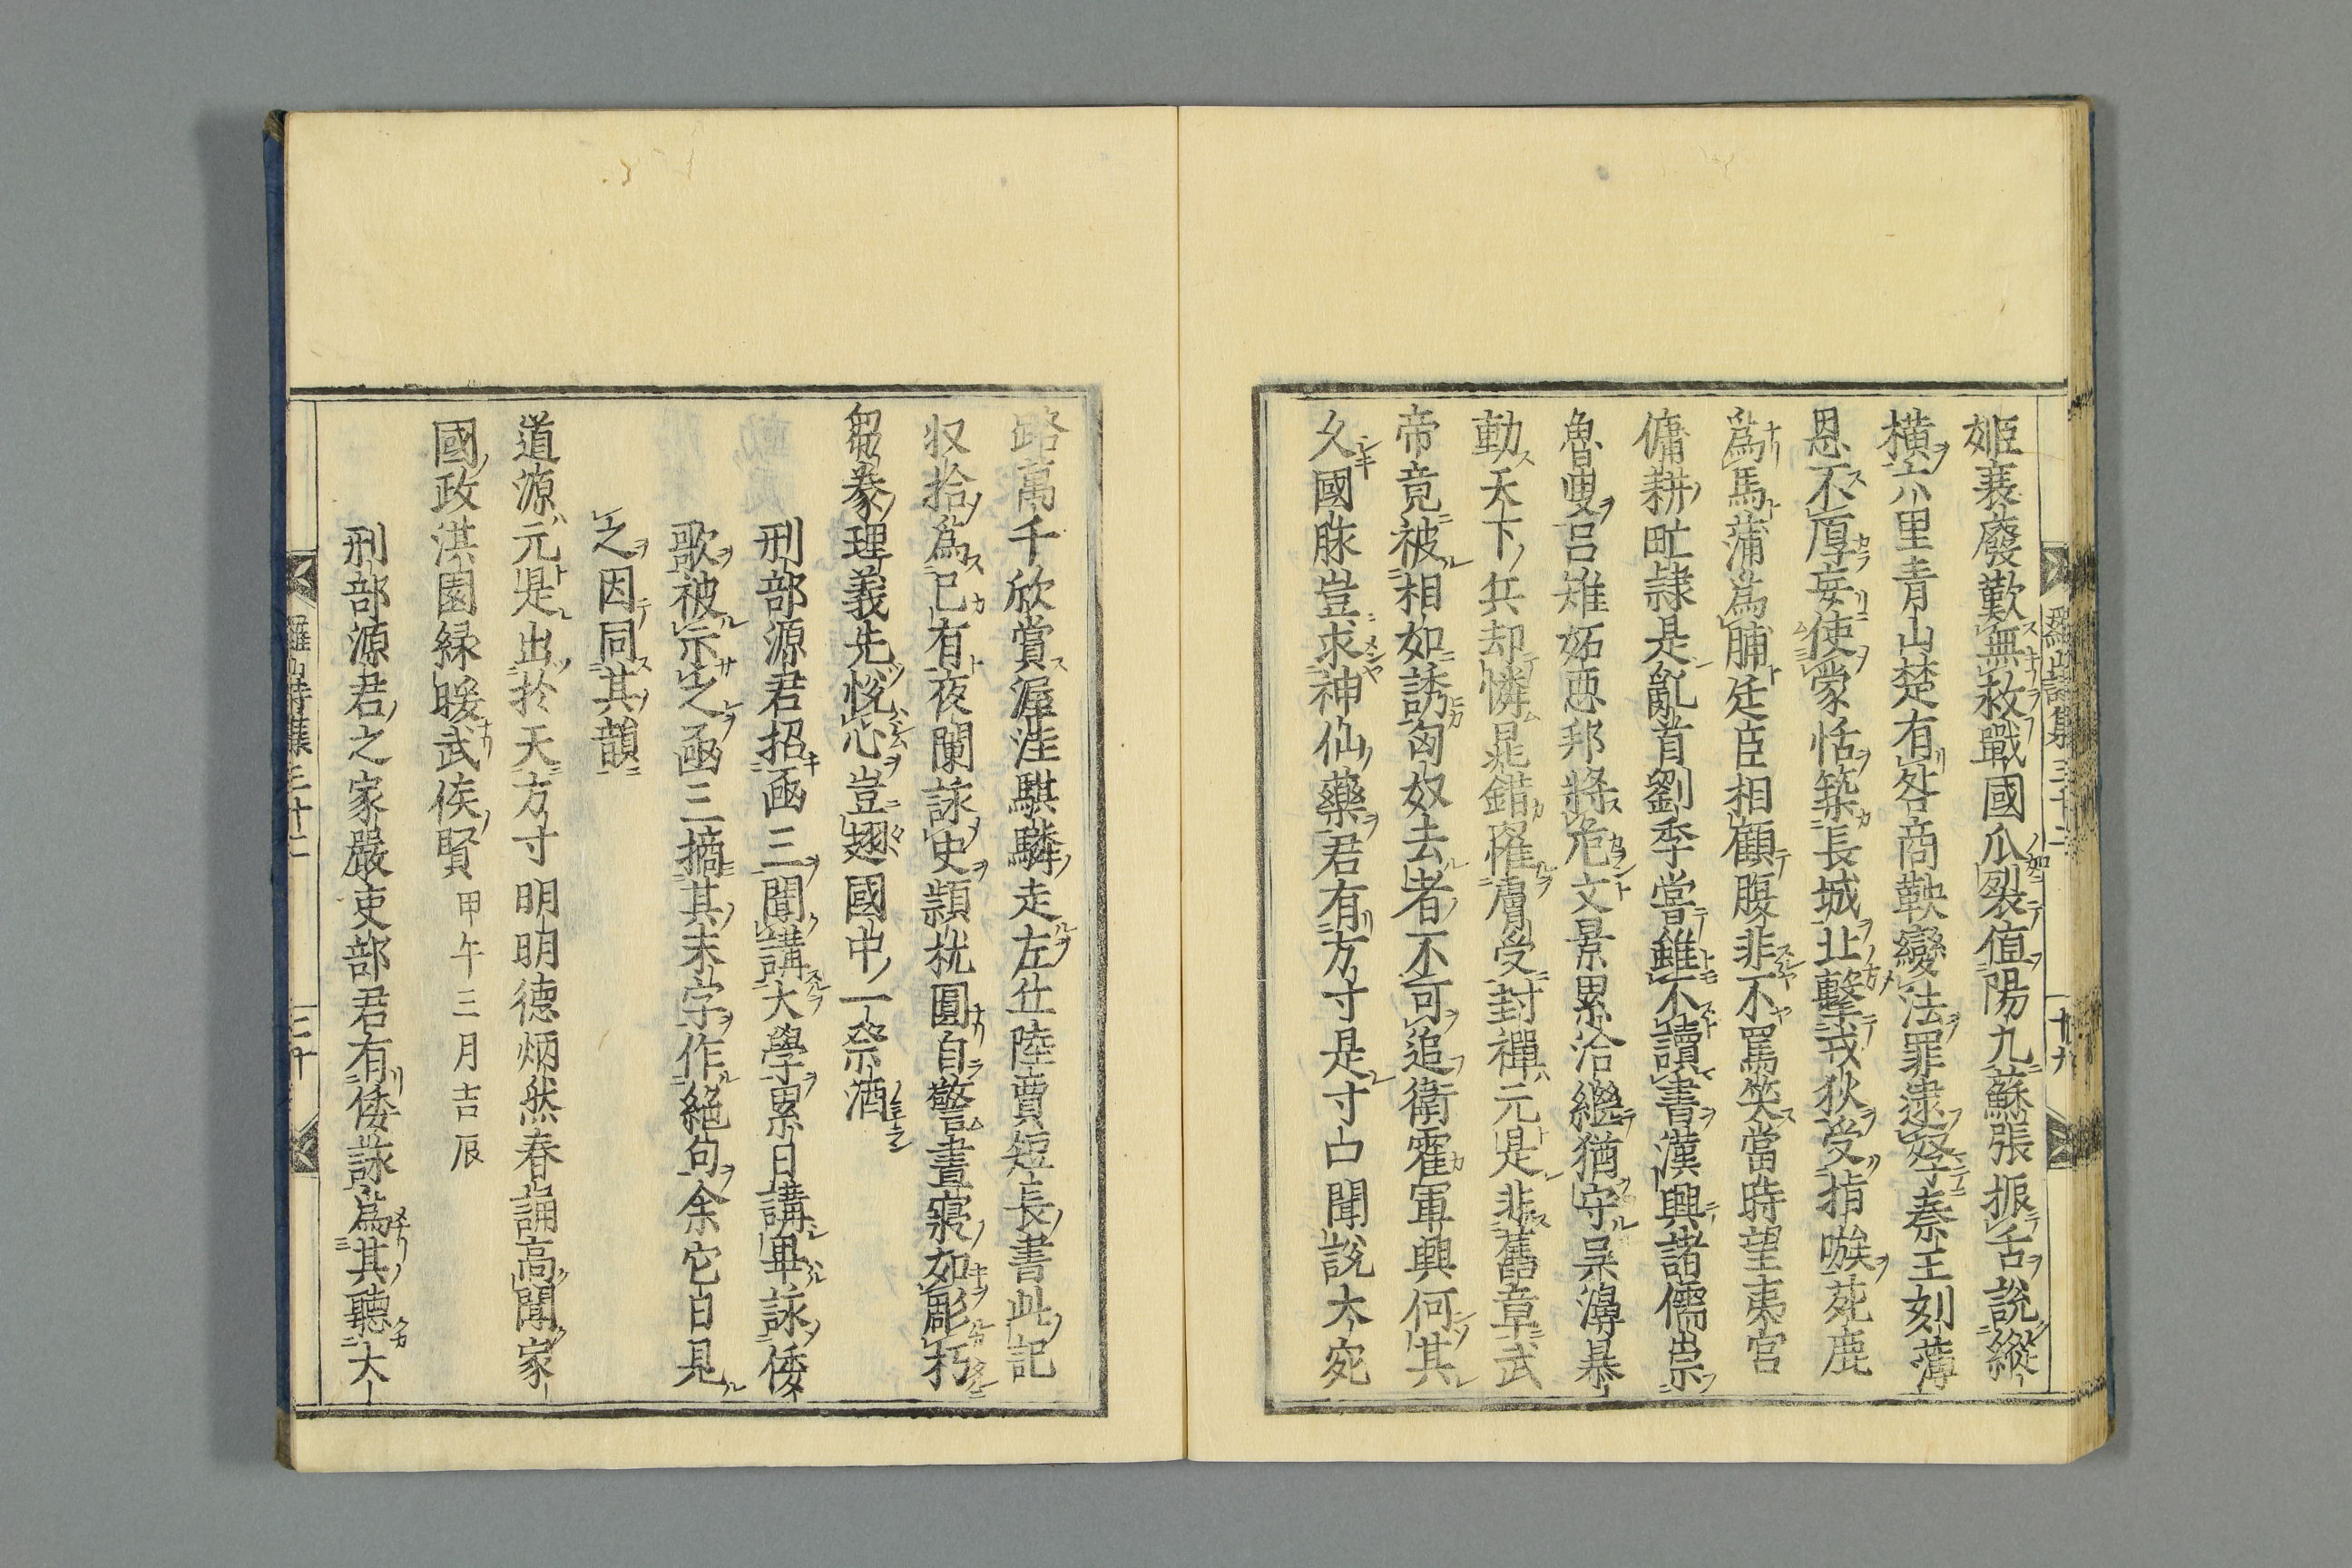 姬衰廢歎無救戰國瓜裂值陽九蘇張振舌說縱
橫六里青山楚有咎商鞅變法罪逮孥秦王刻薄
恩不厚妄使蒙恬築長城北擊戎狄受指嗾苑鹿
爲馬蒲爲脯廷臣相顧腹非不罵笑當時望夷宮
傭耕甿隷是亂首劉季嘗雖不讀書漢興諸儒崇
魯叟呂雉妬悪邦將危文景累洽繼猶守吴濞暴
動天下兵却憐晁錯罹膚受封禪元是非舊章武
帝竟被相如誘匈奴去者不可追衛霍軍興何其
久國脉豈求神仙藥君有方寸是寸口聞說大宛
羅山詩集三十二
廿九
路萬千欣賞渥洼騏驎走左仕陸賈短長書此記
収拾爲已有夜闌詠史頴枕圓自警晝寢如彫朽
芻豢理義先悅心豈翅國中一祭酒
刑部源君招函三聞講大學累日講畢詠倭
歌被示之函三摘其末字作絕句余它日見
之因同其韻
道源元是出於天方寸明明德炳然春誦高聞家
國政淇園緑暖武侯賢 甲午三月吉辰
刑部源君之家嚴吏部君有倭詠爲其聽大
羅山詩集三十二
三十